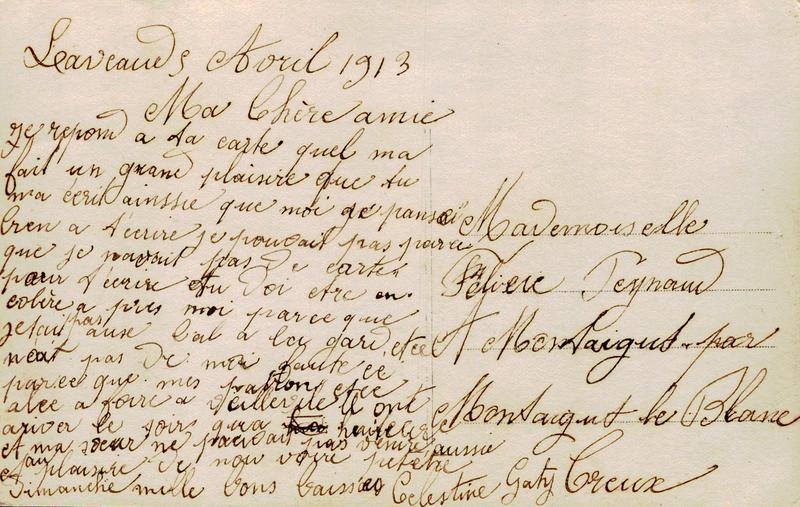 Leavaud 5 Avril 1913
Ma Chère amie
je repond a ta carte quel ma
fait un grand plaisire que tu
ma écrit ainssie que moi je pansai
bien a t'écrire je pouvait pas parce
que je navait pas de cartes
pour t'écrire tu doi etre en
colère a pres moi parce que
je fait pas ause bal a la gard etce
neat pas de ma faute ce
parce que mes patron etce
alee a foire a Veilleville il ont
ariver le soir qua heure
et ma sœur ne pouvait pas venire aussie
au plaisire de nou voire putetre
Dimanche mille bons baisses Celestine Gaty
Mademoiselle
Peynaud
A Montaigut par
Montaigut le Blanc
Creux